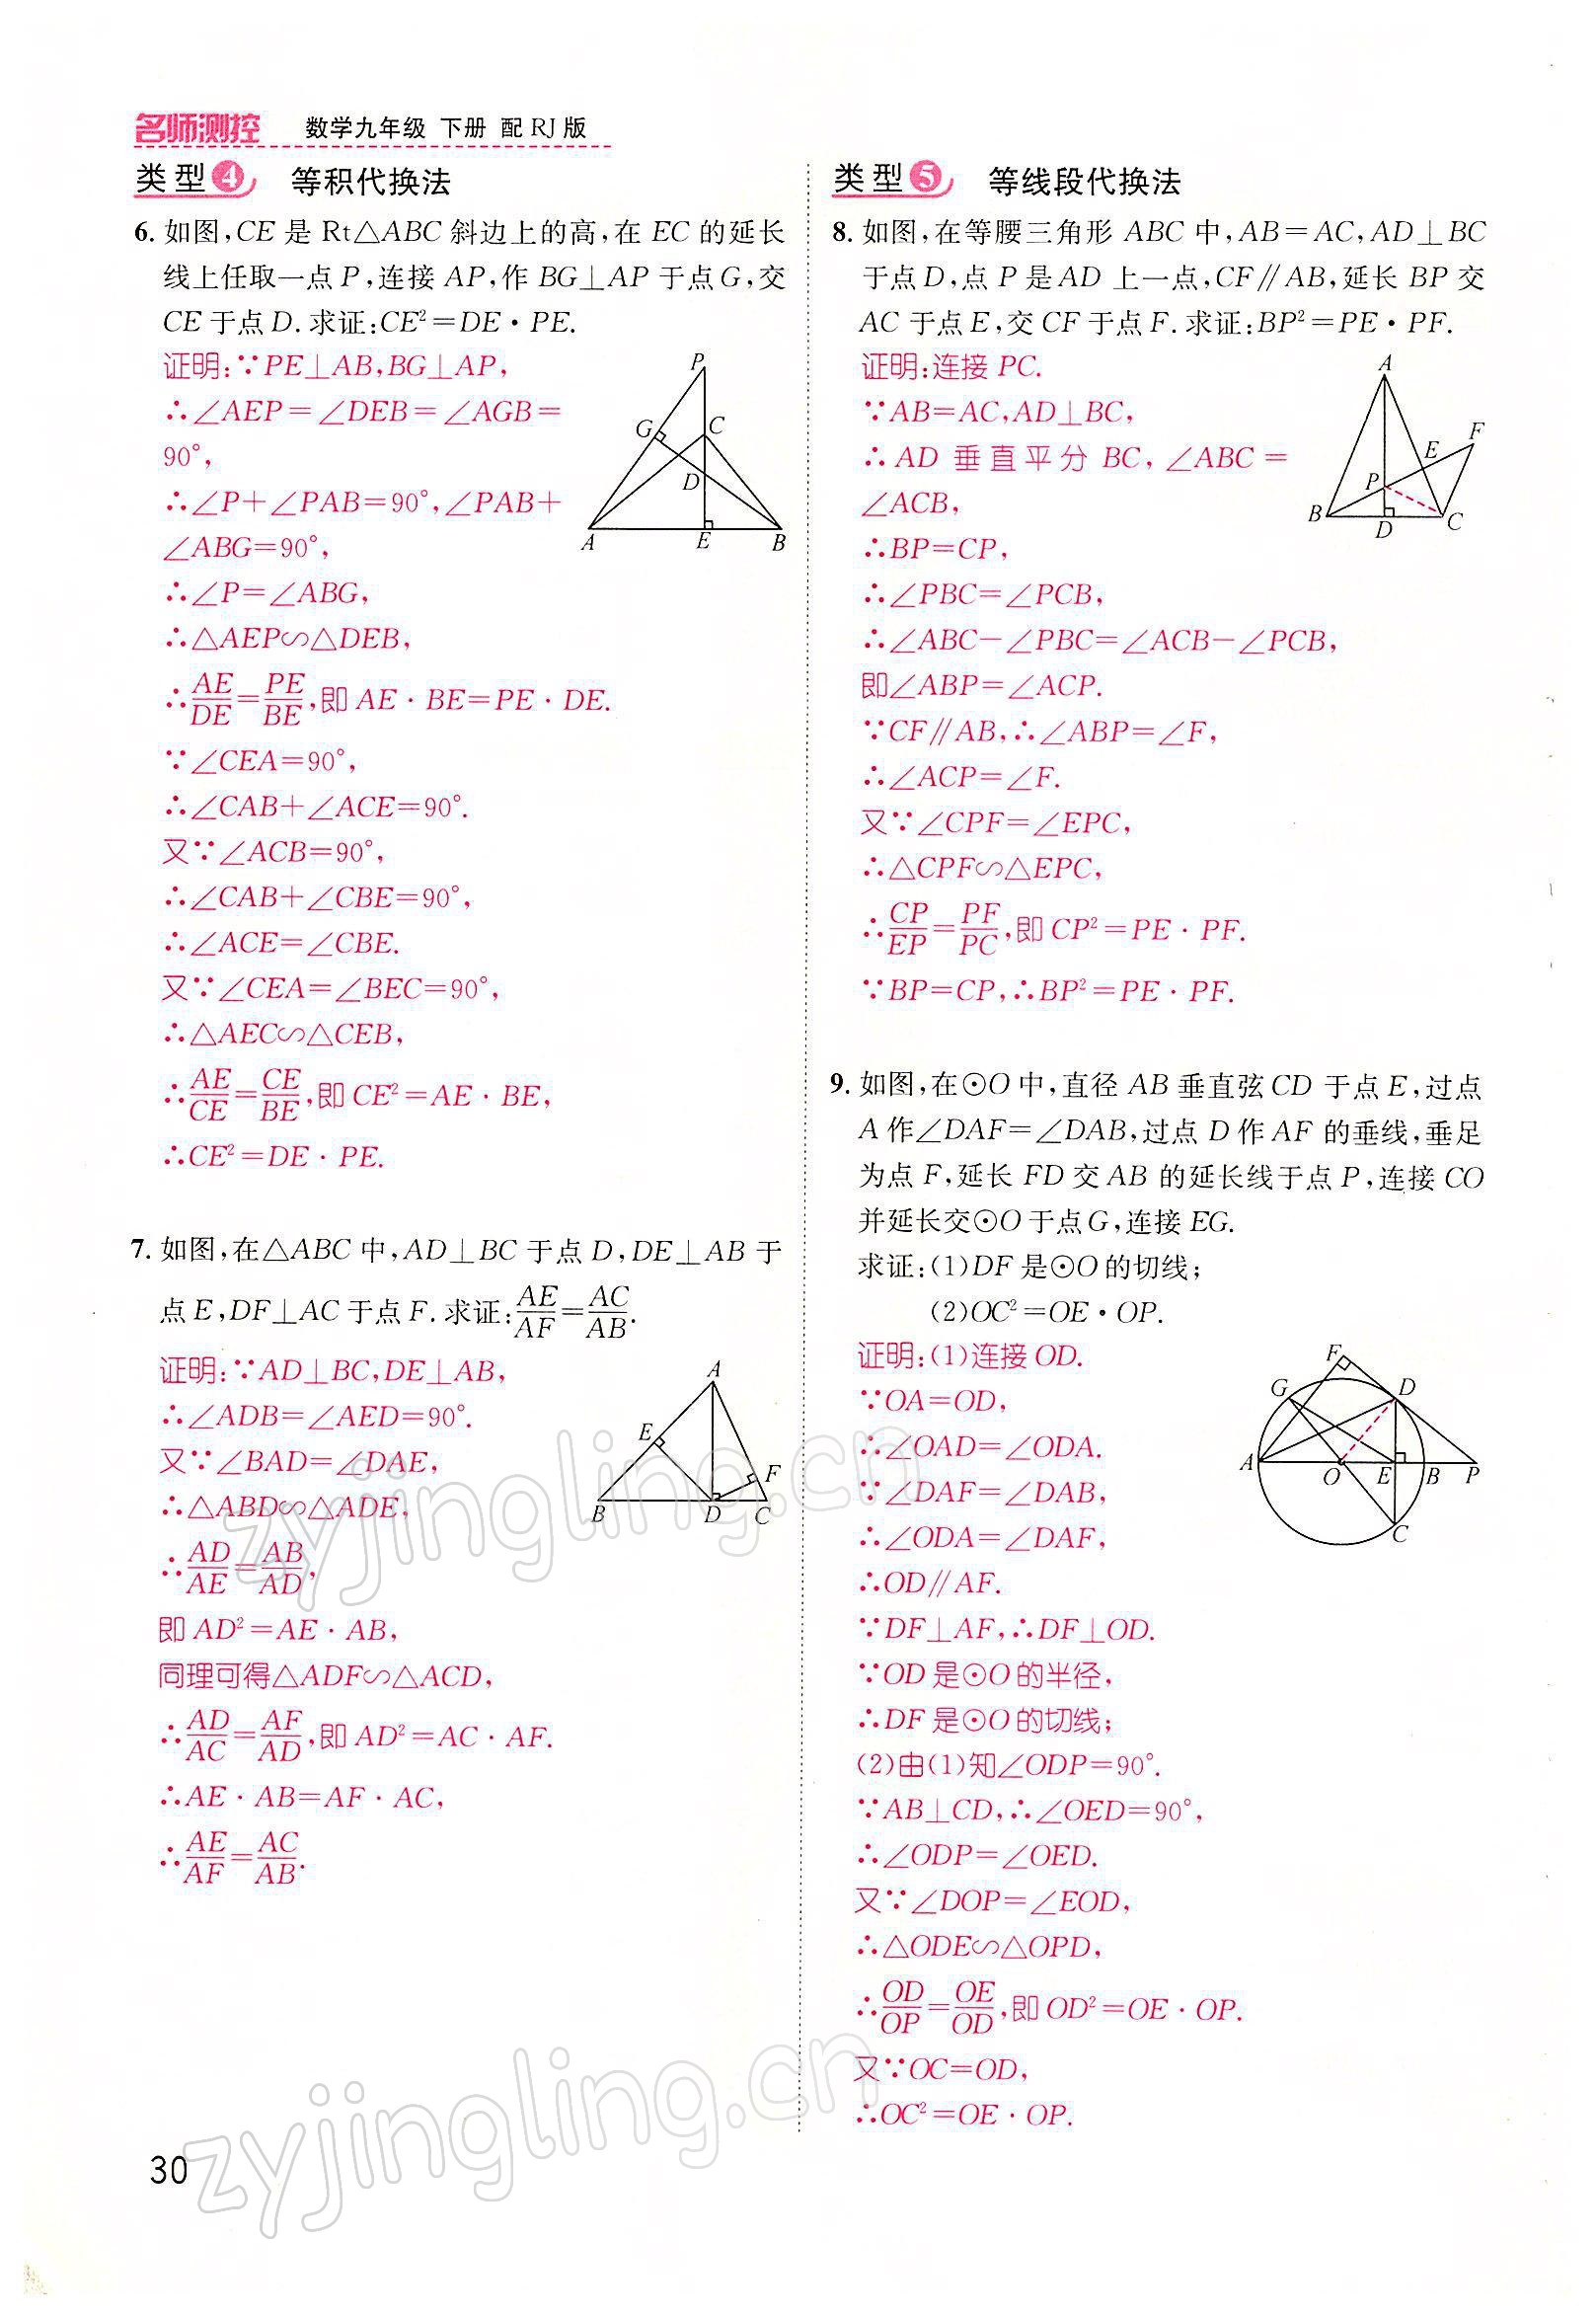 名师测控 数学九年级 下册 配RJ版
类型4 等积代换法
6. 如图,CE 是 Rt△ABC 斜边上的高,在 EC 的延长
线上任取一点 P,连接 AP,作 BG⊥AP 于点 G,交
CE 于点 D. 求证:CE²=DE·PE.
证明:∵PE⊥AB,BG⊥AP,
∴∠AEP=∠DEB=∠AGB=
90°,
∴∠P+∠PAB=90°,∠PAB+
∠ABG=90°,
∴∠P=∠ABG,
∴△AEP∽△DEB,
∴AE/DE=PE/BE,即 AE·BE=PE·DE.
∵∠CEA=90°,
∴∠CAB+∠ACE=90°.
又∵∠ACB=90°,
∴∠CAB+∠CBE=90°,
∴∠ACE=∠CBE.
又∵∠CEA=∠BEC=90°,
∴△AEC∽△CEB,
∴AE/CE=CE/BE,即 CE²=AE·BE,
∴CE²=DE·PE.
P
G
C
D
A
E
B
7. 如图,在△ABC 中,AD⊥BC 于点 D,DE⊥AB 于
点 E,DF⊥AC 于点 F. 求证:AE/AF=AC/AB.
证明:∵AD⊥BC,DE⊥AB,
∴∠ADB=∠AED=90°.
又∵∠BAD=∠DAE,
∴△ABD∽△ADE,
∴AD/AE=AB/AD,
即 AD²=AE·AB,
同理可得△ADF∽△ACD,
∴AD/AC=AF/AD,即 AD²=AC·AF.
∴AE·AB=AF·AC,
∴AE/AF=AC/AB.
A
E
F
B
D
C
类型5 等线段代换法
8. 如图,在等腰三角形 ABC 中,AB=AC,AD⊥BC
于点 D,点 P 是 AD 上一点,CF∥AB,延长 BP 交
AC 于点 E,交 CF 于点 F. 求证:BP²=PE·PF.
证明:连接 PC.
∵AB=AC,AD⊥BC,
∴AD 垂直平分 BC,∠ABC=
∠ACB,
∴BP=CP,
∴∠PBC=∠PCB,
∴∠ABC−∠PBC=∠ACB−∠PCB,
即∠ABP=∠ACP.
∵CF∥AB,∴∠ABP=∠F,
∴∠ACP=∠F.
又∵∠CPF=∠EPC,
∴△CPF∽△EPC,
∴CP/EP=PF/PC,即 CP²=PE·PF.
∵BP=CP,∴BP²=PE·PF.
A
F
E
P
B
D
C
9. 如图,在⊙O 中,直径 AB 垂直弦 CD 于点 E,过点
A 作∠DAF=∠DAB,过点 D 作 AF 的垂线,垂足
为点 F,延长 FD 交 AB 的延长线于点 P,连接 CO
并延长交⊙O 于点 G,连接 EG.
求证:(1)DF 是⊙O 的切线;
(2)OC²=OE·OP.
证明:(1)连接 OD.
∵OA=OD,
∴∠OAD=∠ODA.
∵∠DAF=∠DAB,
∴∠ODA=∠DAF,
∴OD∥AF.
∵DF⊥AF,∴DF⊥OD.
∵OD 是⊙O 的半径,
∴DF 是⊙O 的切线;
(2)由(1)知∠ODP=90°.
∵AB⊥CD,∴∠OED=90°,
∴∠ODP=∠OED.
又∵∠DOP=∠EOD,
∴△ODE∽△OPD,
∴OD/OP=OE/OD,即 OD²=OE·OP.
又∵OC=OD,
∴OC²=OE·OP.
F
G
D
A
O
E
B
P
C
zyjingling.cn
zyjingling.cn
30